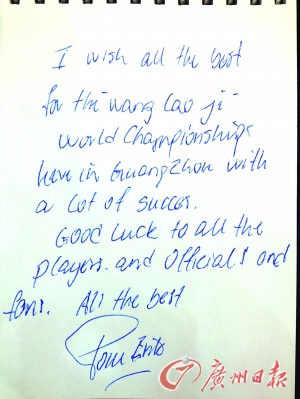 I wish all the best
for the "wang Lao ji"
World Championships
here in Guangzhou with
a lot of succes.
Good luck to all the
players. and Officials and
fans. All the best
廣州日報